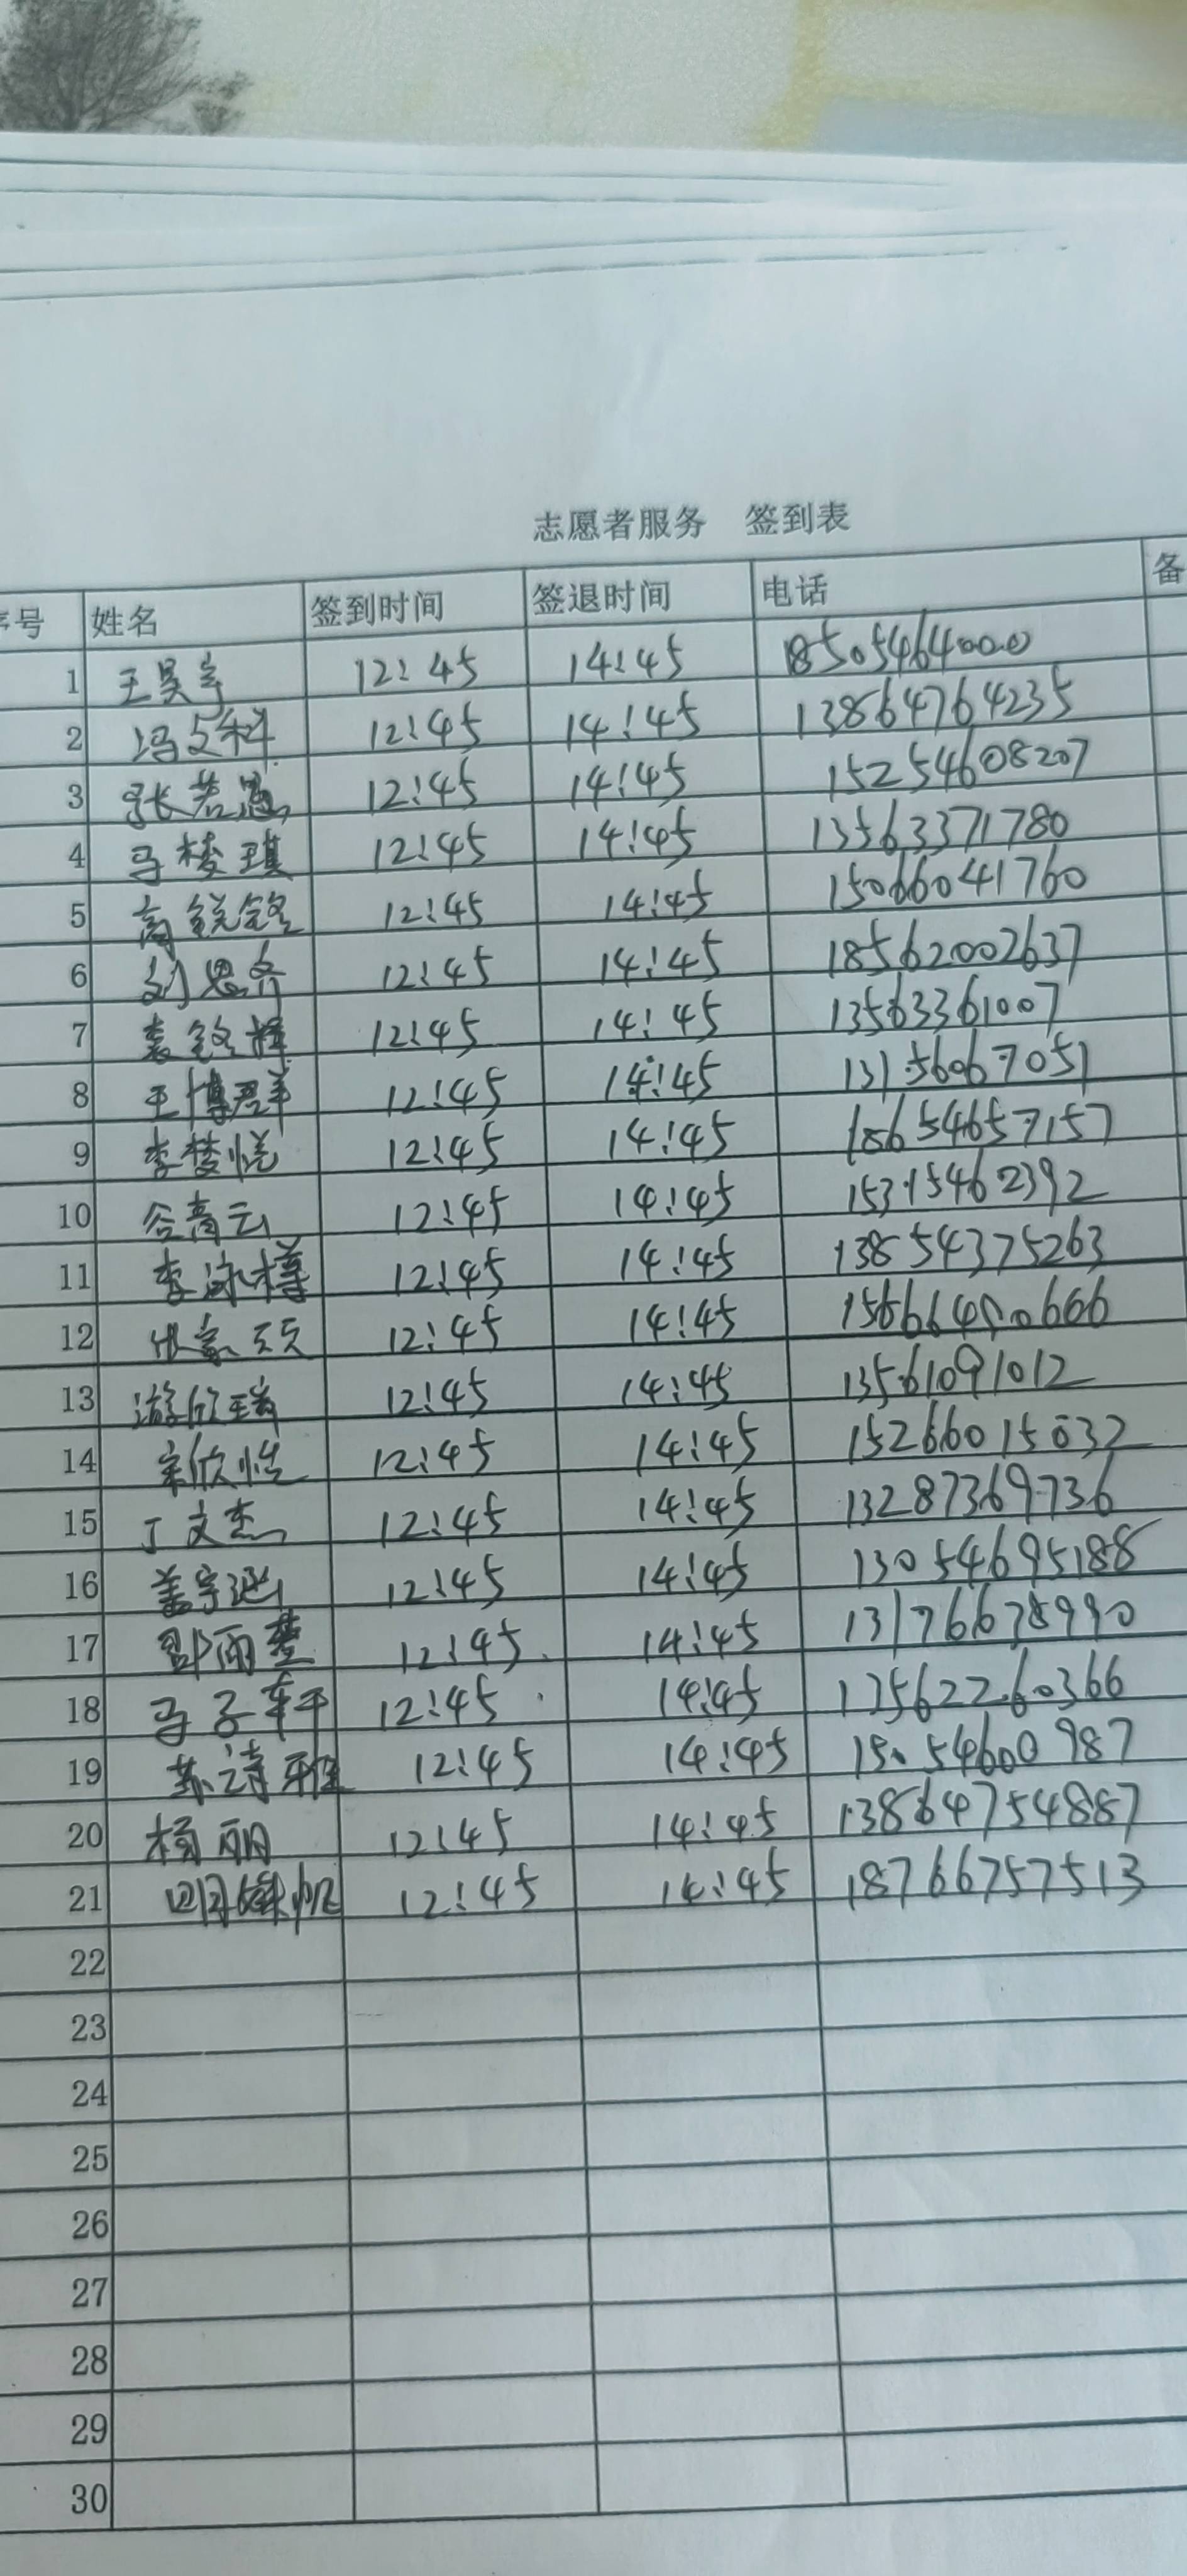 志愿者服务 签到表
序号 姓名 签到时间 签退时间 电话 备
1 王昊宇 12:45 14:45 18505464000
2 冯文科 12:45 14:45 13864764235
3 张若愚 12:45 14:45 15254608207
4 马梭琪 12:45 14:45 13563371780
5 高锐铭 12:45 14:45 15066041760
6 刘思齐 12:45 14:45 18562002637
7 袁铭辉 12:45 14:45 13563361007
8 王博群 12:45 14:45 13156067051
9 李梦悦 12:45 14:45 18654657157
10 谷青云 12:45 14:45 15315462392
11 李泳樽 12:45 14:45 13854375263
12 12:45 14:45
13 游欣瑞 12:45 14:45 13561091012
14 宋欣恬 12:45 14:45 15266015032
15 丁文杰 12:45 14:45 13287369736
16 盖宇 12:45 14:45 13054695188
17 邵雨萱 12:45 14:45 13176678990
18 马子轩 12:45 14:45 13562260366
19 苏诗雅 12:45 14:45 15054600987
20 杨丽 12:45 14:45 13864754887
21 12:45 14:45 18766757513
22
23
24
25
26
27
28
29
30